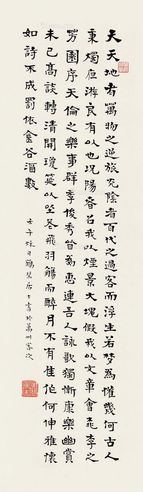 夫天地者萬物之逆旅光陰者百代之過客而浮生若夢為懽幾何古人
秉燭夜游良有以也況陽春召我以煙景大塊假我以文章會桃李之
芳園序天倫之樂事群季俊秀皆為惠連吾人詠歌獨慚康樂幽賞
未已高談轉清開瓊筵以坐花飛羽觴而醉月不有佳作何伸雅懷
如詩不成罰依金谷酒數
壬子秋日書於萬州客次